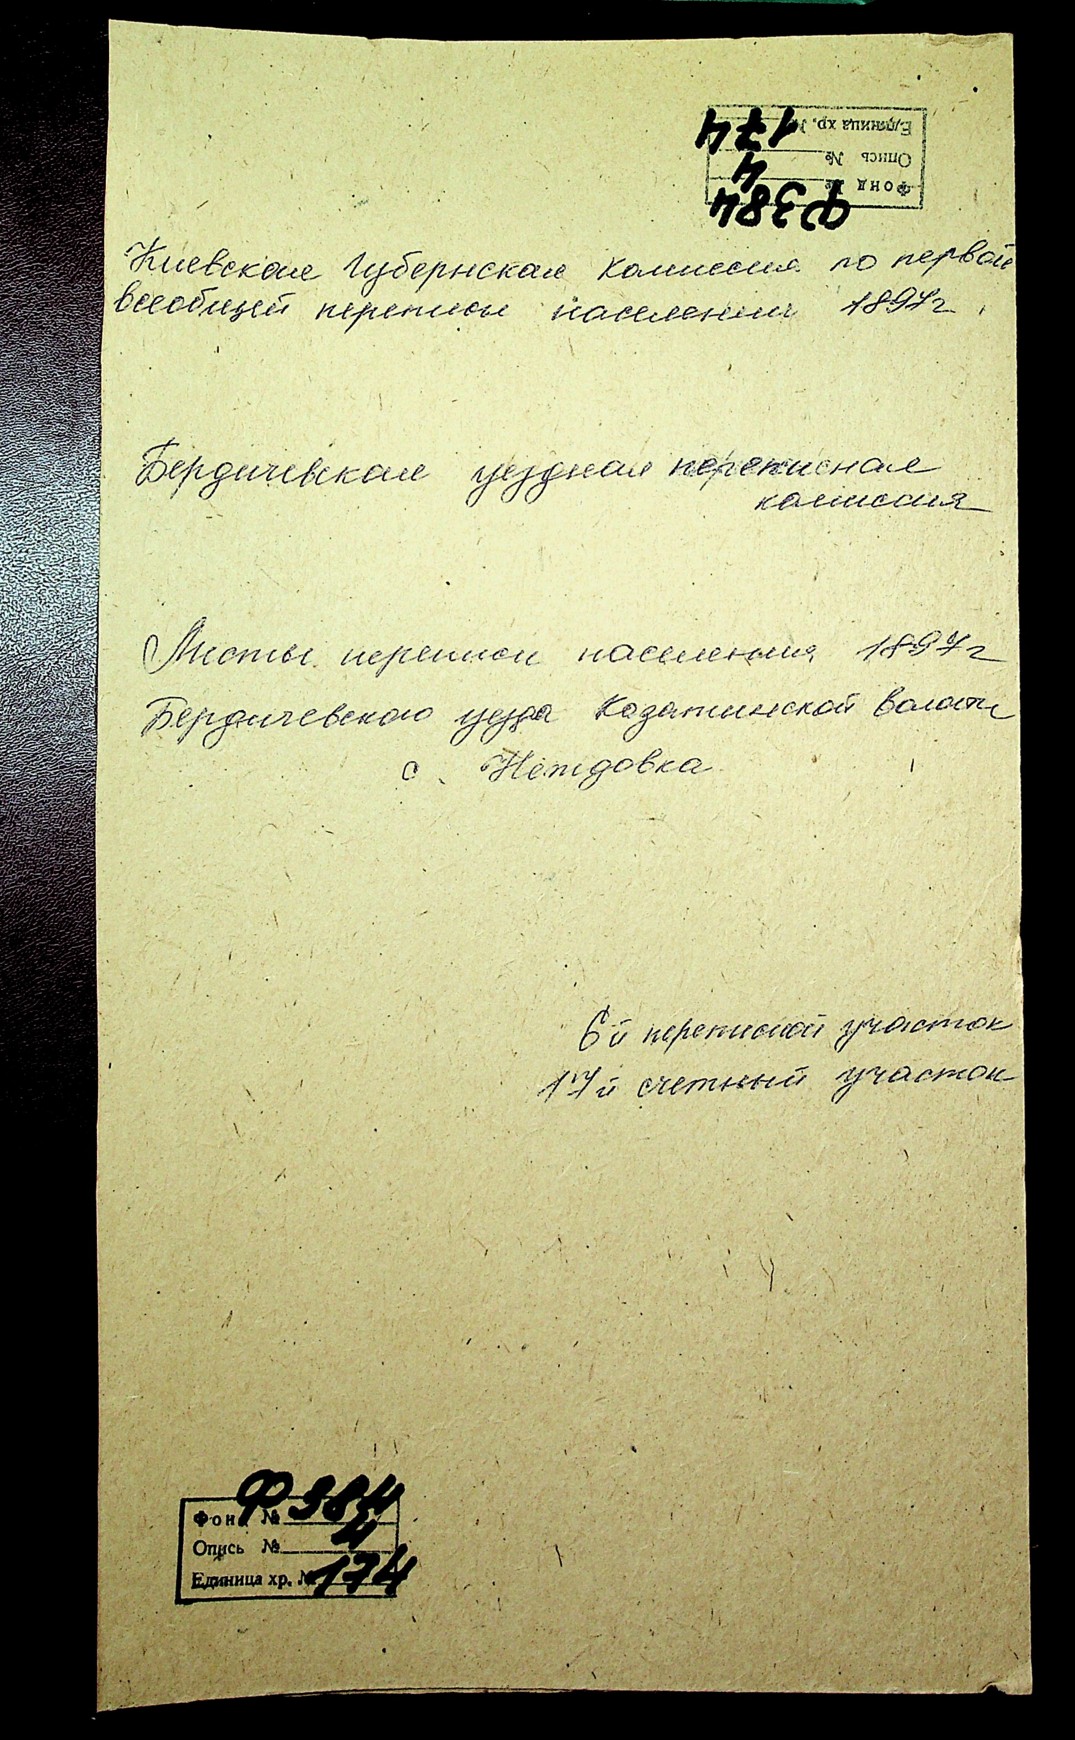 Единица хр. № 174
Опись № 4
Фонд № Ф384
Киевская Губернская комиссия по первой
всеобщей переписи населения 1897г.
Бердичевская уездная переписная
комиссия
Листы переписи населения 1897г
Бердичевского уезда Казатинской волости
с. Неждовка
6й переписной участок
17й счетный участок
Фонд № Ф384
Опись № 4
Единица хр. № 174